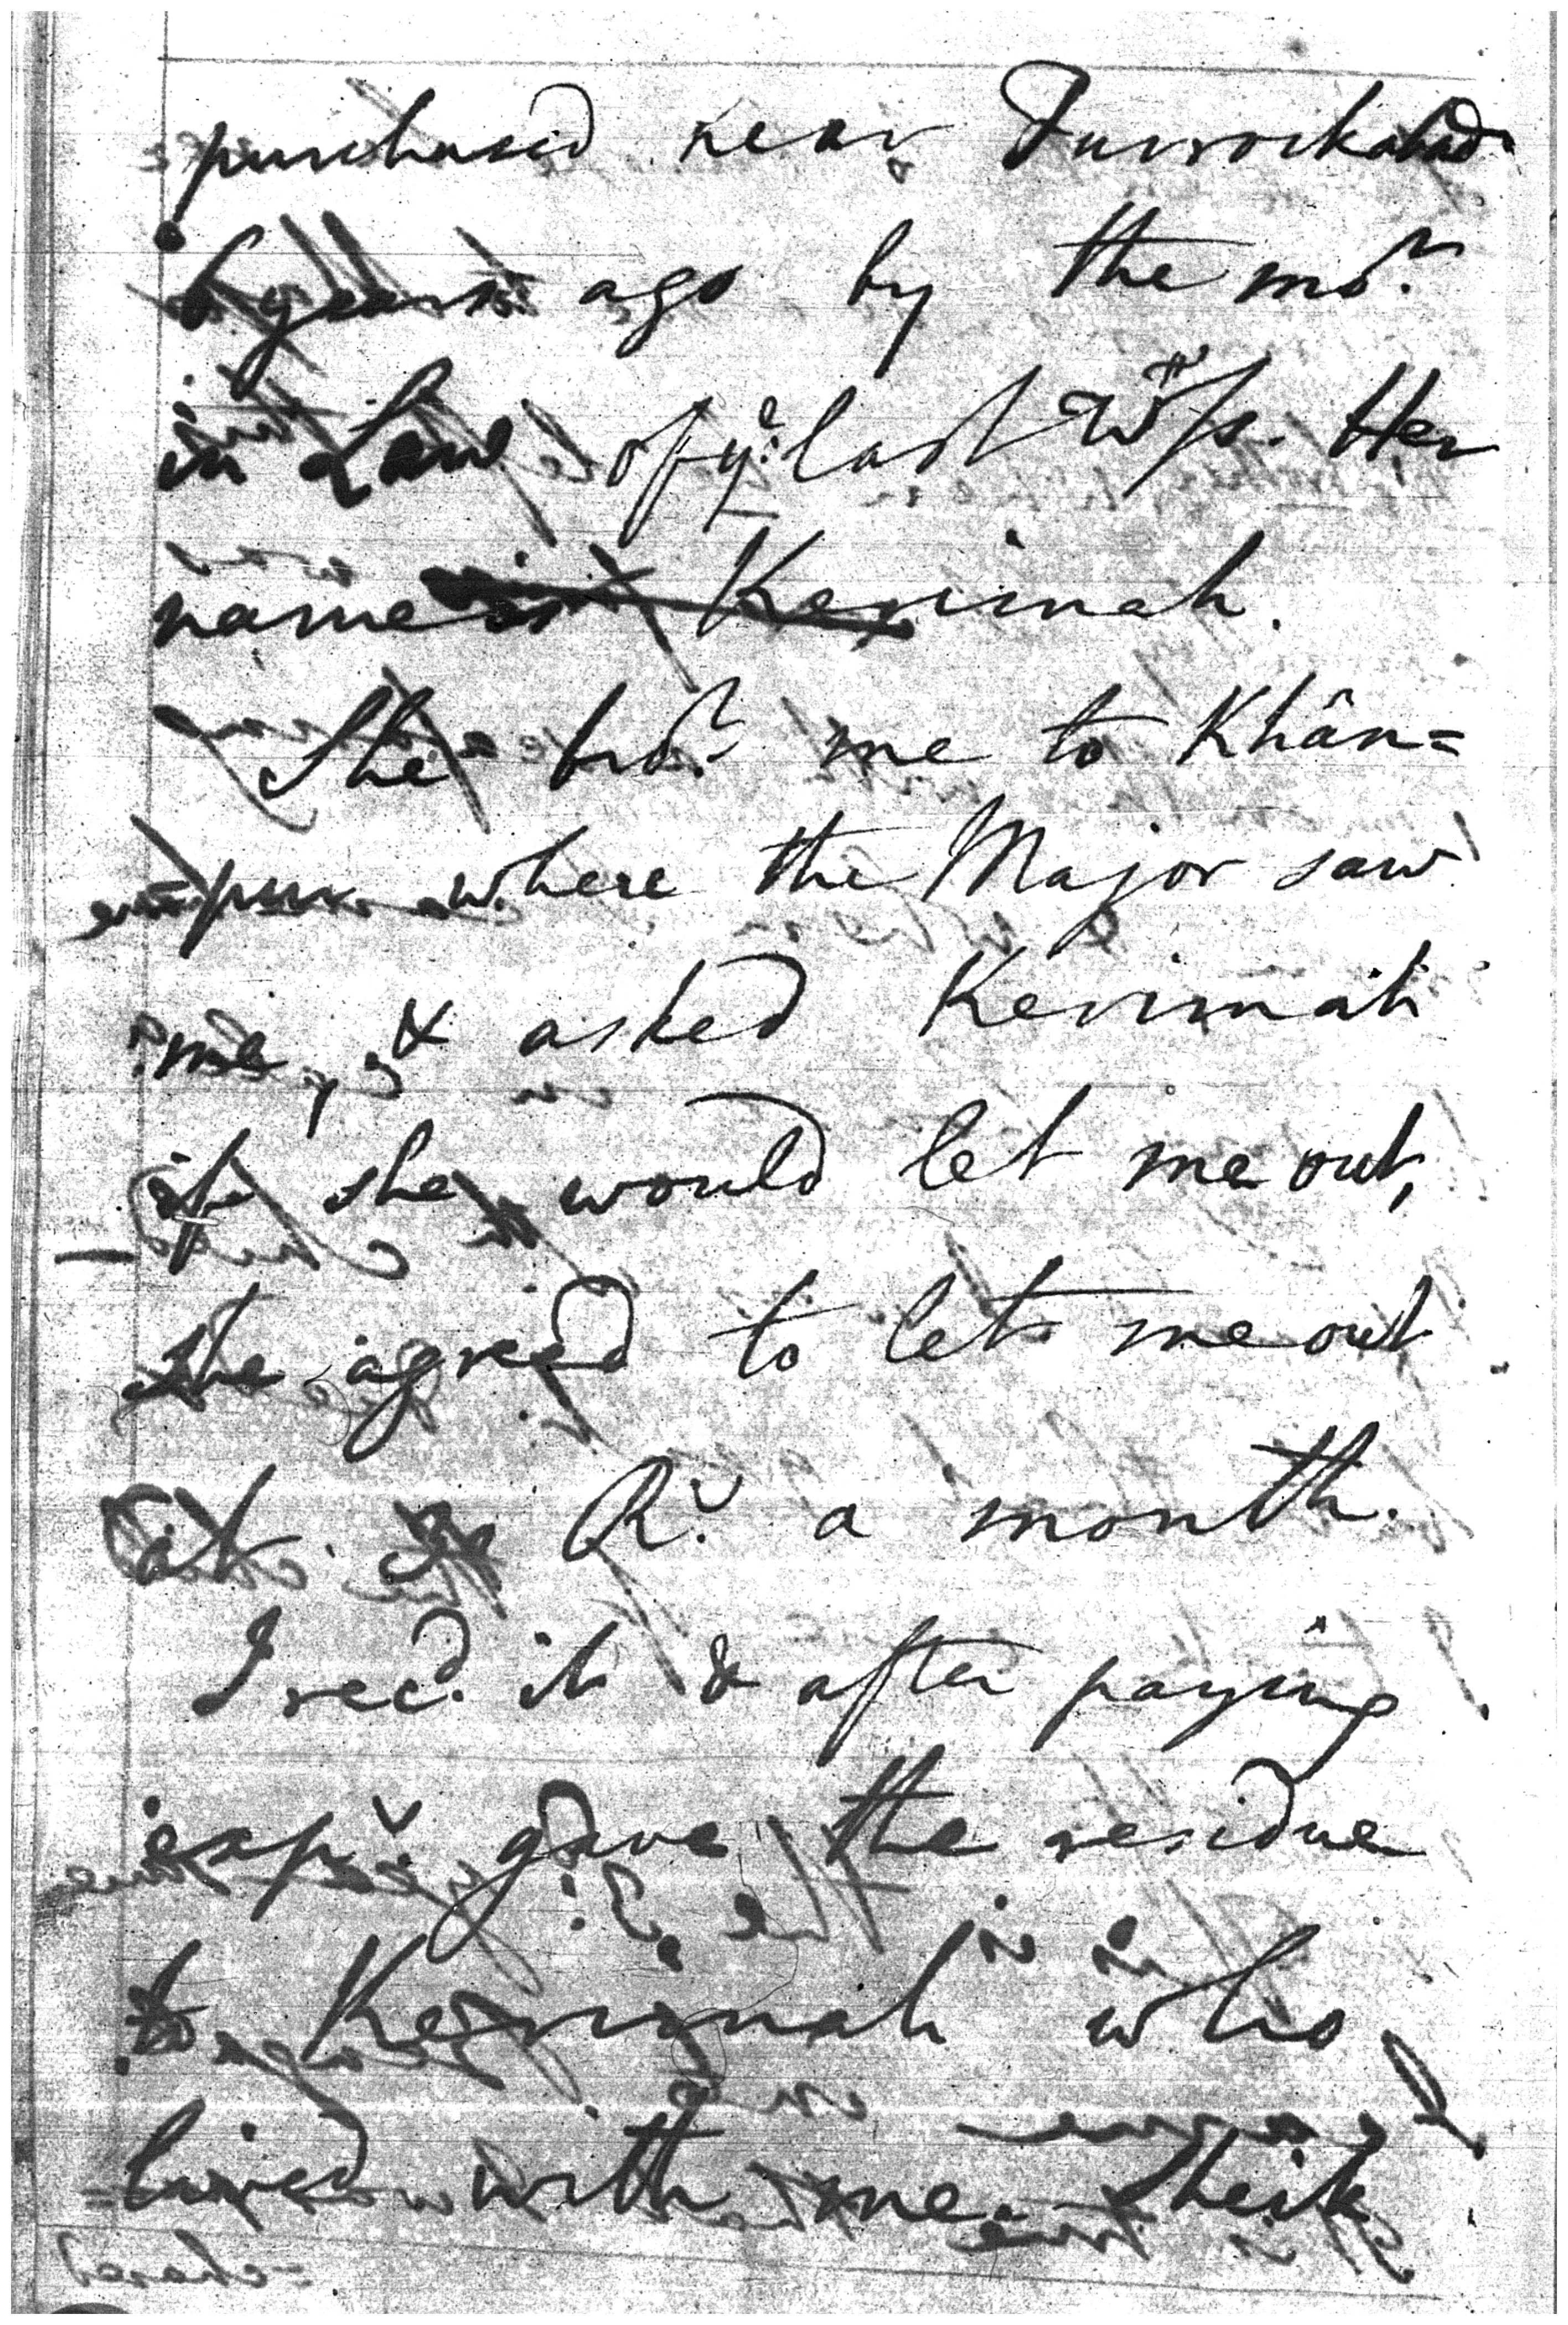 purchased near Furrockabad
6 years ago by the mo.r
in Law of y.e last W.ss. Her
name is Kerimah.
She bro.t me to Khân=
=pur where the Major saw
me, & asked Kerimah
if she would let me out,
she agreed to let me out
at R.s a month.
I rec.d it & after paying
exp.s gave the residue
to Kerimah who
lived with me. Sheik